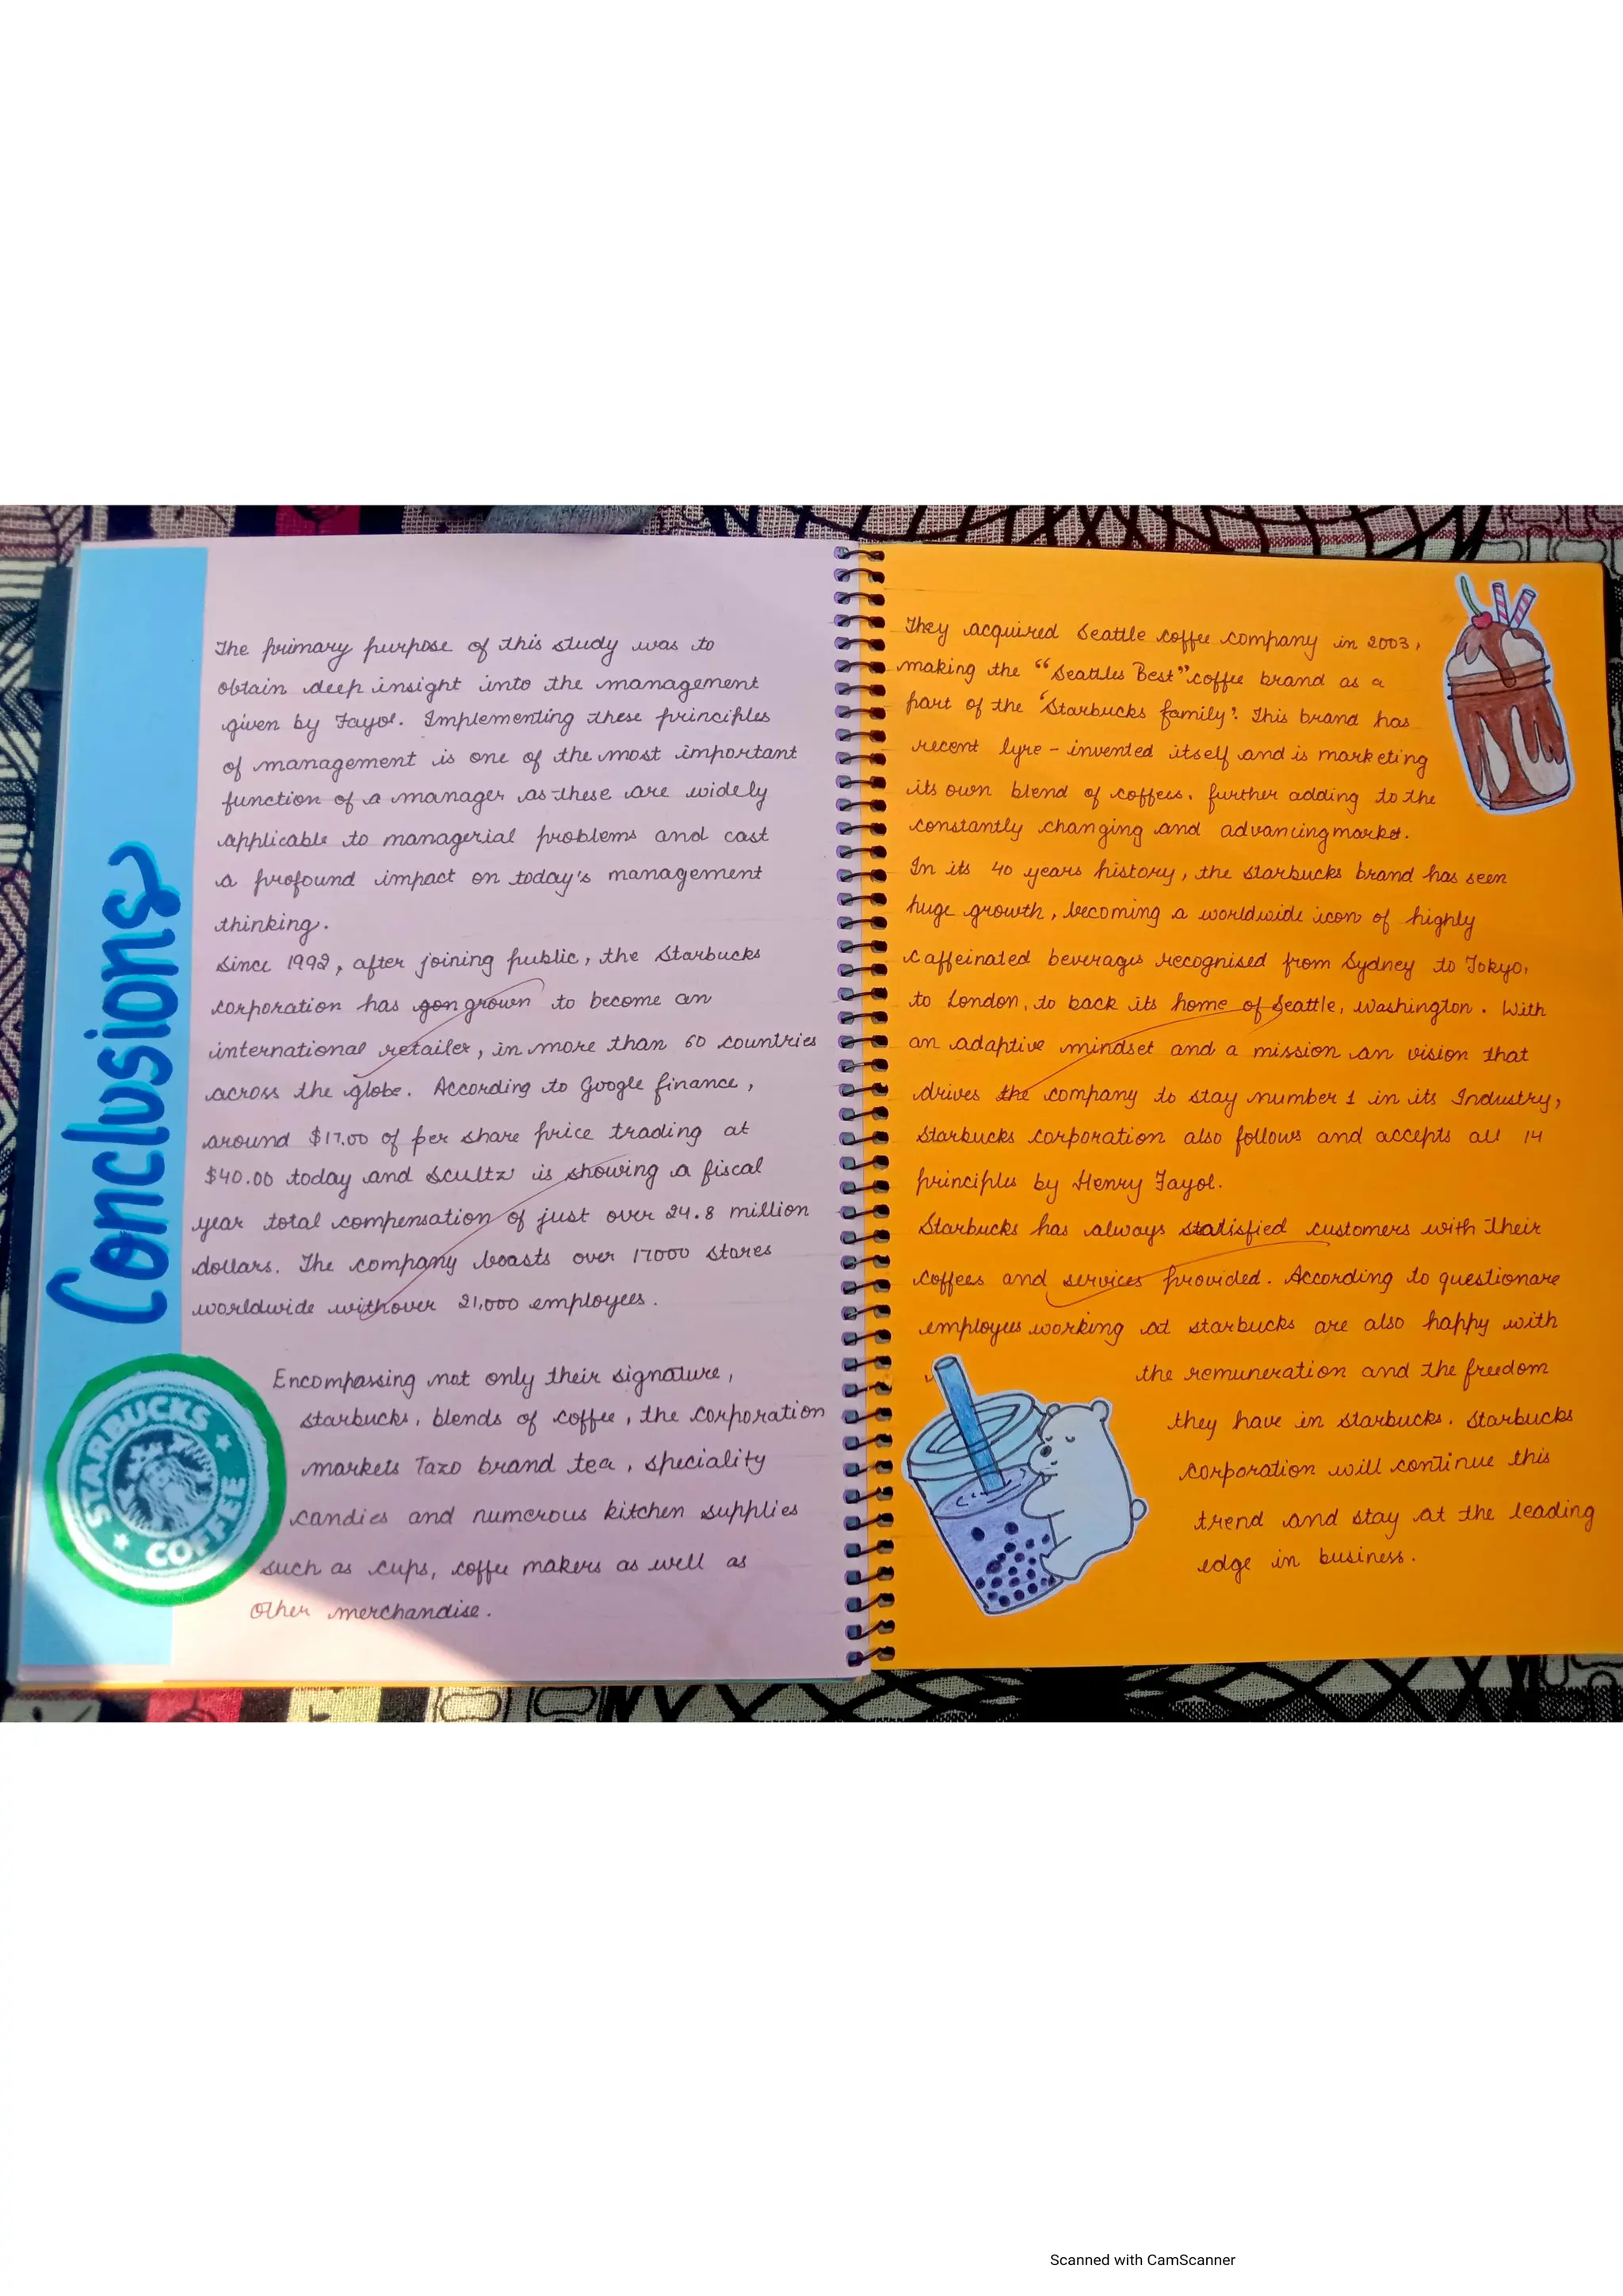 Conclusions
The primary purpose of this study was to
obtain deep insight into the management
given by Fayol. Implementing these principles
of management is one of the most important
function of a manager as these are widely
applicable to managerial problems and cast
a profound impact on today's management
thinking.
Since 1992, after joining public, the Starbucks
corporation has gon grown to become an
international retailer, in more than 60 countries
across the globe. According to Google finance,
around $17.00 of per share price trading at
$40.00 today and Scultz is showing a fiscal
year total compensation of just over 24.8 million
dollars. The company boasts over 17000 stores
worldwide with over 21,000 employees.
Encompassing not only their signature,
starbucks, blends of coffee, the corporation
markets Tazo brand tea, speciality
candies and numerous kitchen supplies
such as cups, coffee makers as well as
other merchandise.
STARBUCKS
COFFEE
They acquired Seattle coffee company in 2003,
making the "Seattles Best" coffee brand as a
part of the 'Starbucks family'. This brand has
recent lyre - invented itself and is marketing
its own blend of coffees, further adding to the
constantly changing and advancing market.
In its 40 years history, the starbucks brand has seen
huge growth, becoming a worldwide icon of highly
caffeinated beverages recognised from Sydney to Tokyo,
to London, to back its home of Seattle, Washington. With
an adaptive mindset and a mission an vision that
drives the company to stay number 1 in its Industry,
Starbucks corporation also follows and accepts all 14
principles by Henry Fayol.
Starbucks has always statisfied customers with their
coffees and services provided. According to questionare
employees working at starbucks are also happy with
the remuneration and the freedom
they have in starbucks. Starbucks
corporation will continue this
trend and stay at the leading
edge in business.
Scanned with CamScanner